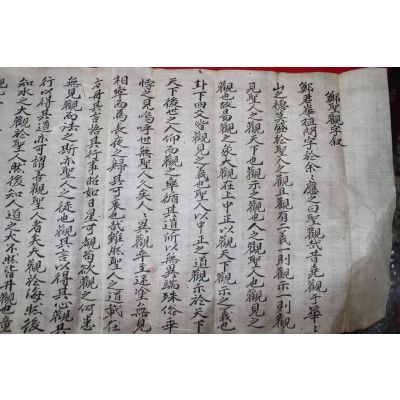 鄭聖觀字叙
鄭君榮植問字於余々應之曰聖觀哉昔堯觀于華々
山之德莫盛於聖人之觀其觀有二義一則觀示一則觀
見聖人之觀天下也觀示之觀也人之觀聖人也觀見之
觀也故易觀之彖大觀在上中正以觀天下觀示之義也
卦下四爻皆觀見之義也聖人以中正之道觀示於天下
天下後世之人仰而觀之舉循其道所以無異端殊俗乖
悖之見嗚呼世無聖人久矣人々異觀率迷塗無見
相率而為長夜之歸其可哀也哉雖然聖人之道載在
方冊其言語其行事昭如日星可觀苟欲觀之何患
無見觀而法之斯亦聖人之徒也觀其言以得其心觀其
行以得其道亦可謂善觀聖人者矣夫觀於海然後
知水之大觀於聖人然後知人道之大不然皆井觀也童